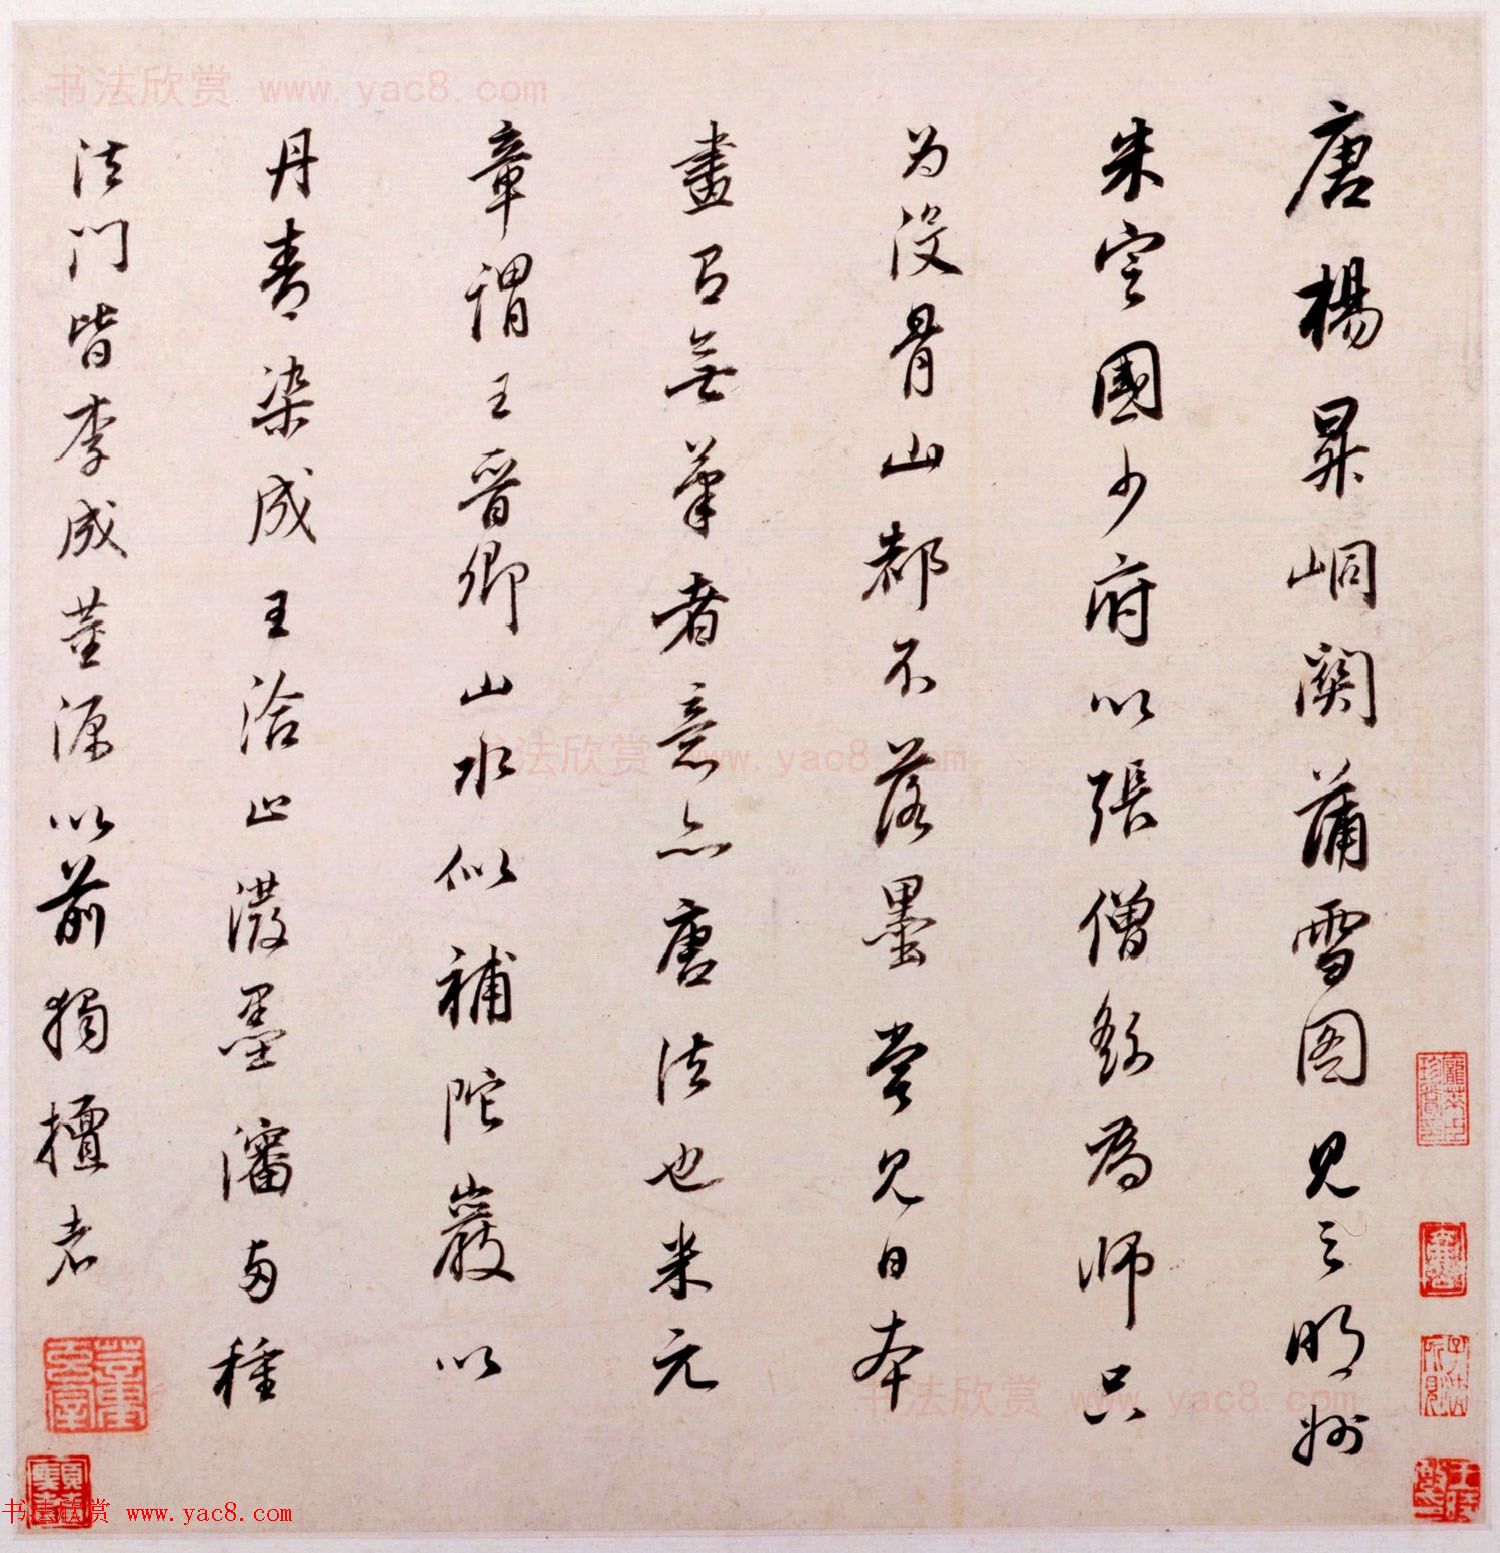 唐楊昇峒関蒲雪图見之明州
朱定國少府以張僧繇為师只
为没骨山都不落墨嘗見日本
畫有無筆者意亦唐法也米元
章謂王晉卿山水似補陀巖以
丹青染成王洽止潑墨瀋両種
法门皆李成董源以前獨擅者
书法欣赏 www.yac8.com
书法欣赏 www.yac8.com
书法欣赏 www.yac8.com
书法欣赏 www.yac8.com